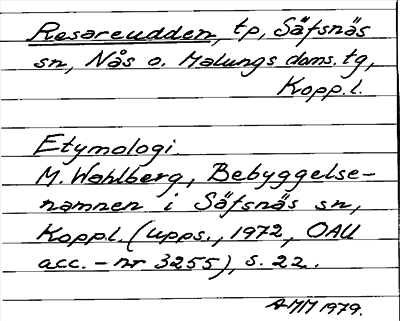 Resareudden, tp, Säfsnäs
sn, Nås o. Malungs doms. tg,
Kopp. l.
Etymologi.
M. Wahlberg, Bebyggelse-
namnen i Säfsnäs sn,
Kopp l. (Upps., 1972, OAU
acc. - nr 3255), s. 22.
AMM 1979.